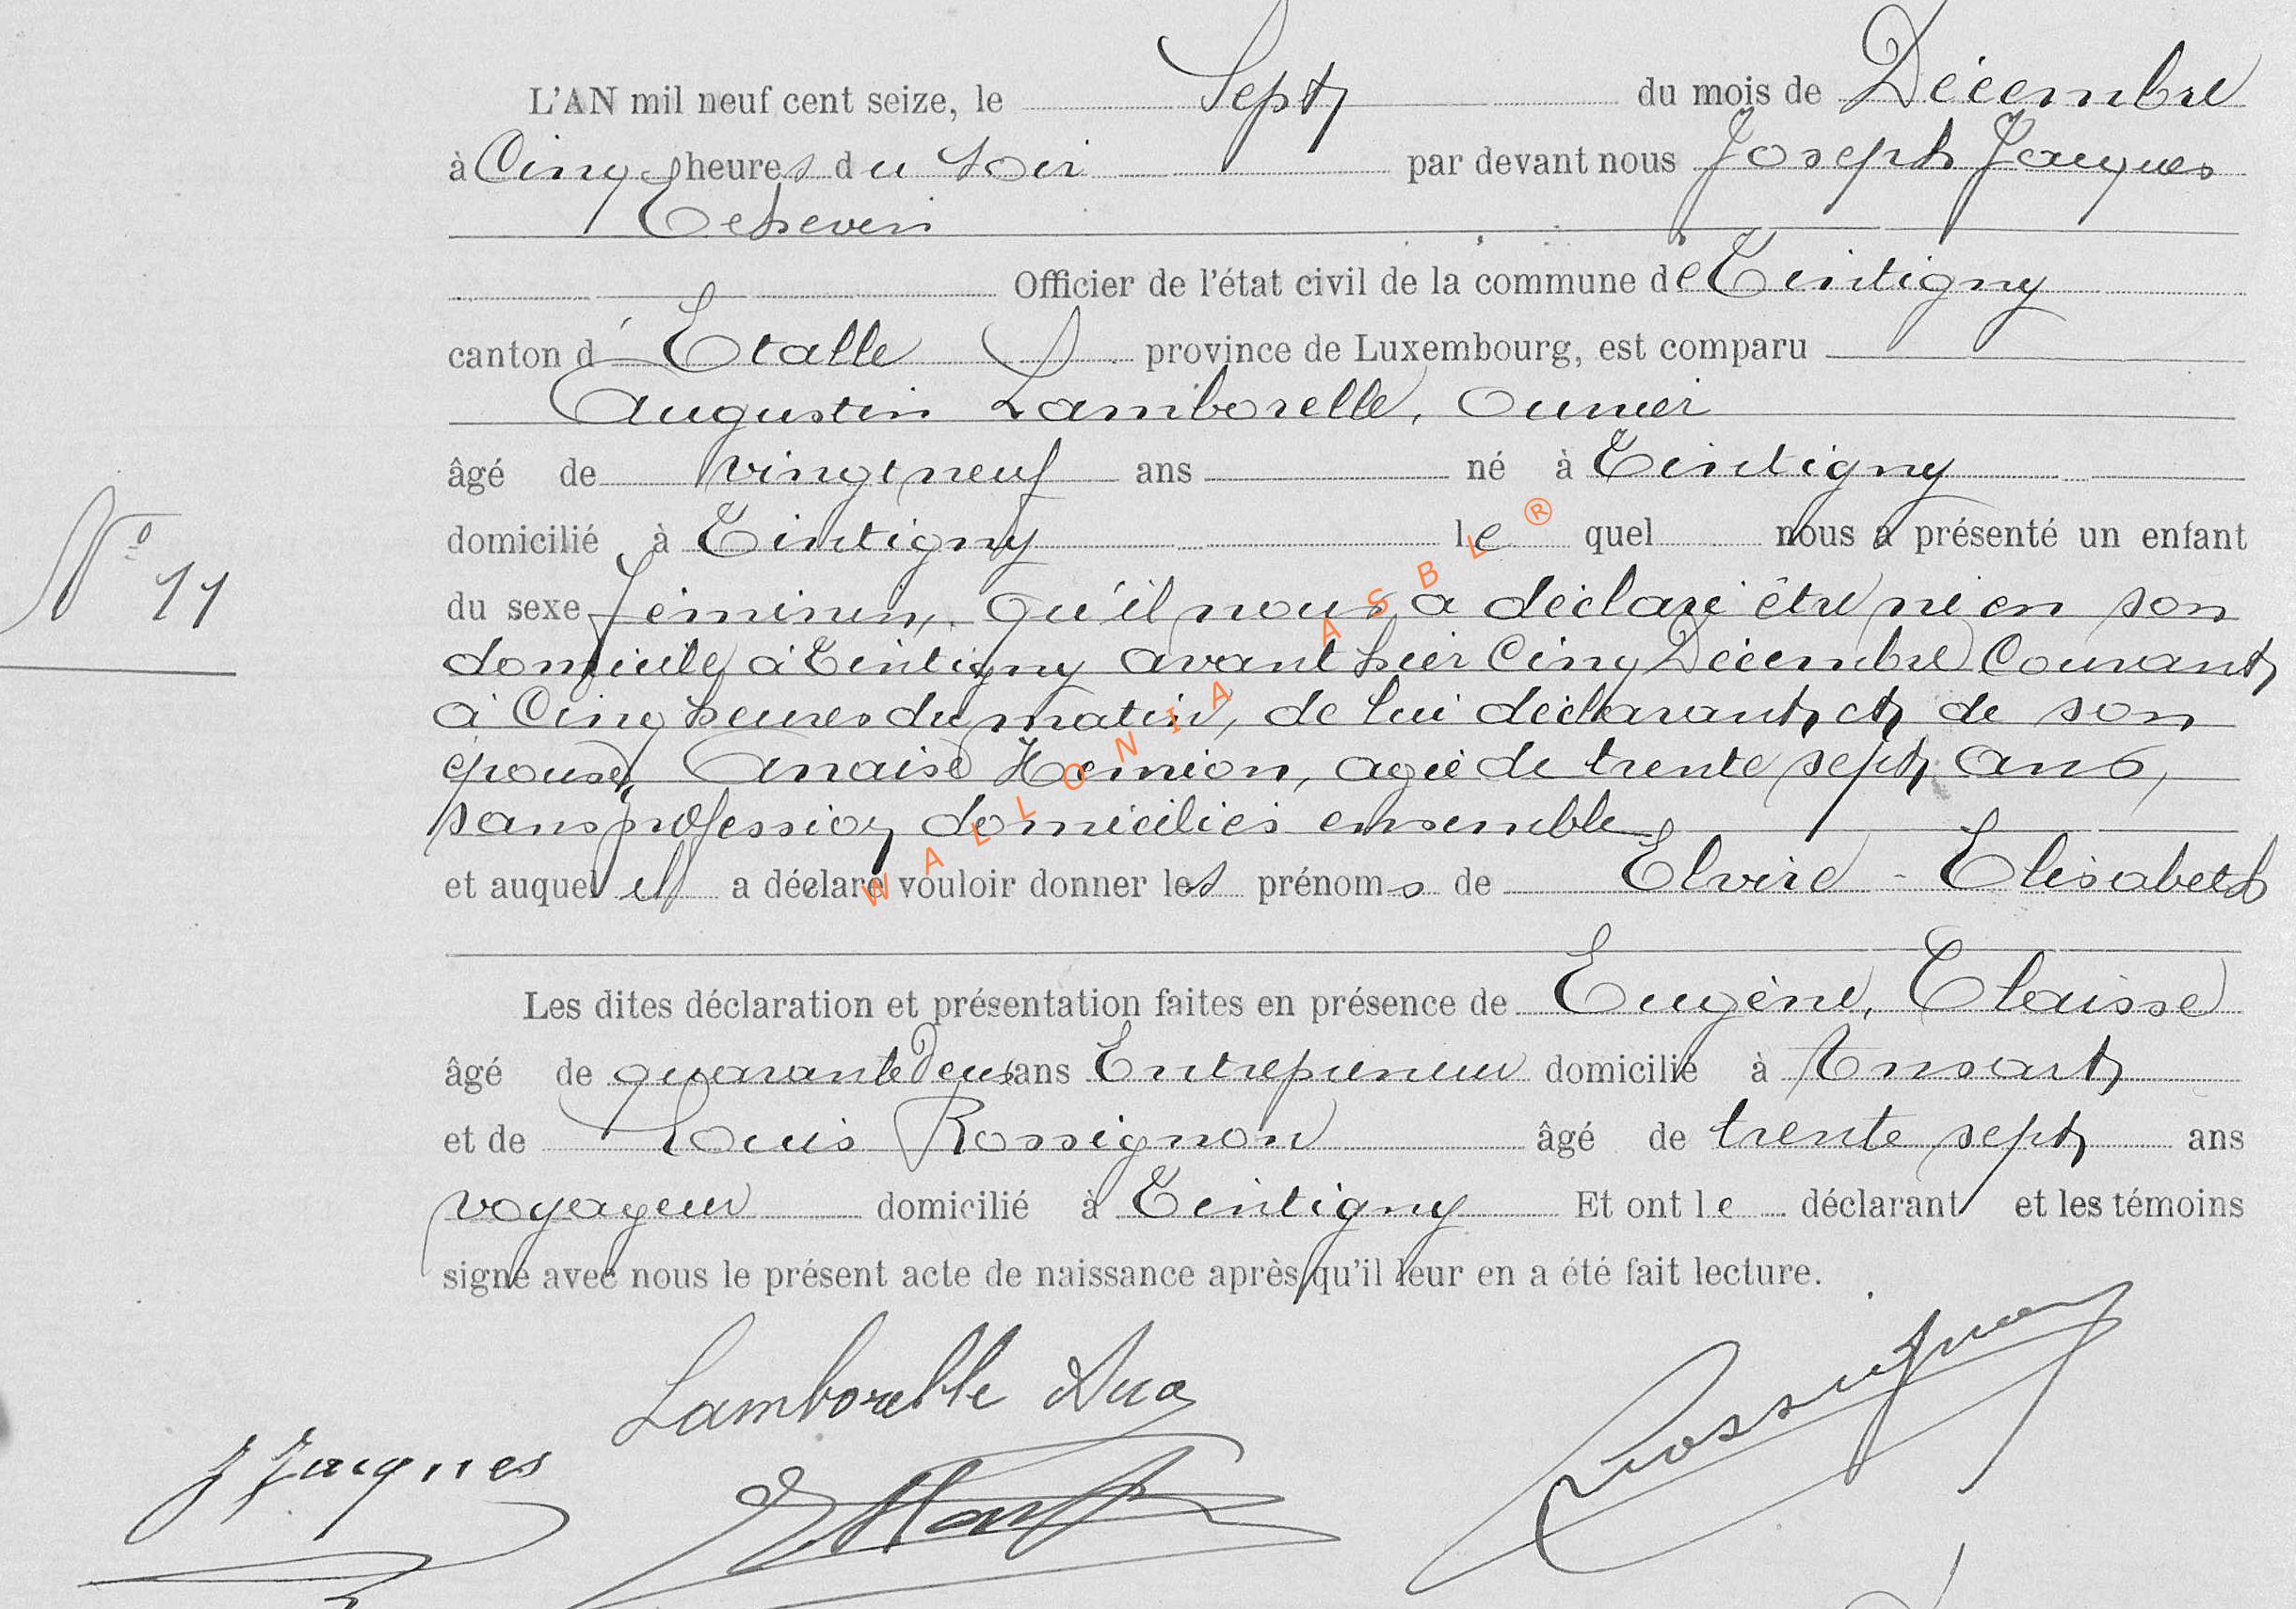 L'AN mil neuf cent seize, le Sept du mois de Décembre
à Cinq heures du soir par devant nous Joseph Jacques
Echevin
Officier de l'état civil de la commune de Tintigny
canton d'Etalle province de Luxembourg, est comparu
Augustin Lamborelle, ouvrier
âgé de vingt neuf ans né à Tintigny
domicilié à Tintigny lequel nous a présenté un enfant
N° 11
du sexe féminin, qu'il nous a déclaré être né en son
domicile à Tintigny avant hier Cinq Décembre Courant
à Cinq heures du matin, de lui déclarant et de son
épouse, Anaïse Hemion, agée de trente sept ans,
sans profession domiciliés ensemble
et auquel il a déclaré vouloir donner les prénoms de Elvire - Elisabeth
Les dites déclaration et présentation faites en présence de Eugène, Claisse
âgé de quarante deux ans Entrepreneur domicilié à Ansart
et de Louis Rossignon âgé de trente sept ans
voyageur domicilié à Tintigny Et ont le déclarant et les témoins
signé avec nous le présent acte de naissance après qu'il leur en a été fait lecture.
Lamborelle Aug
Rossignon
J Jacques
WALLONIA ASBL ®